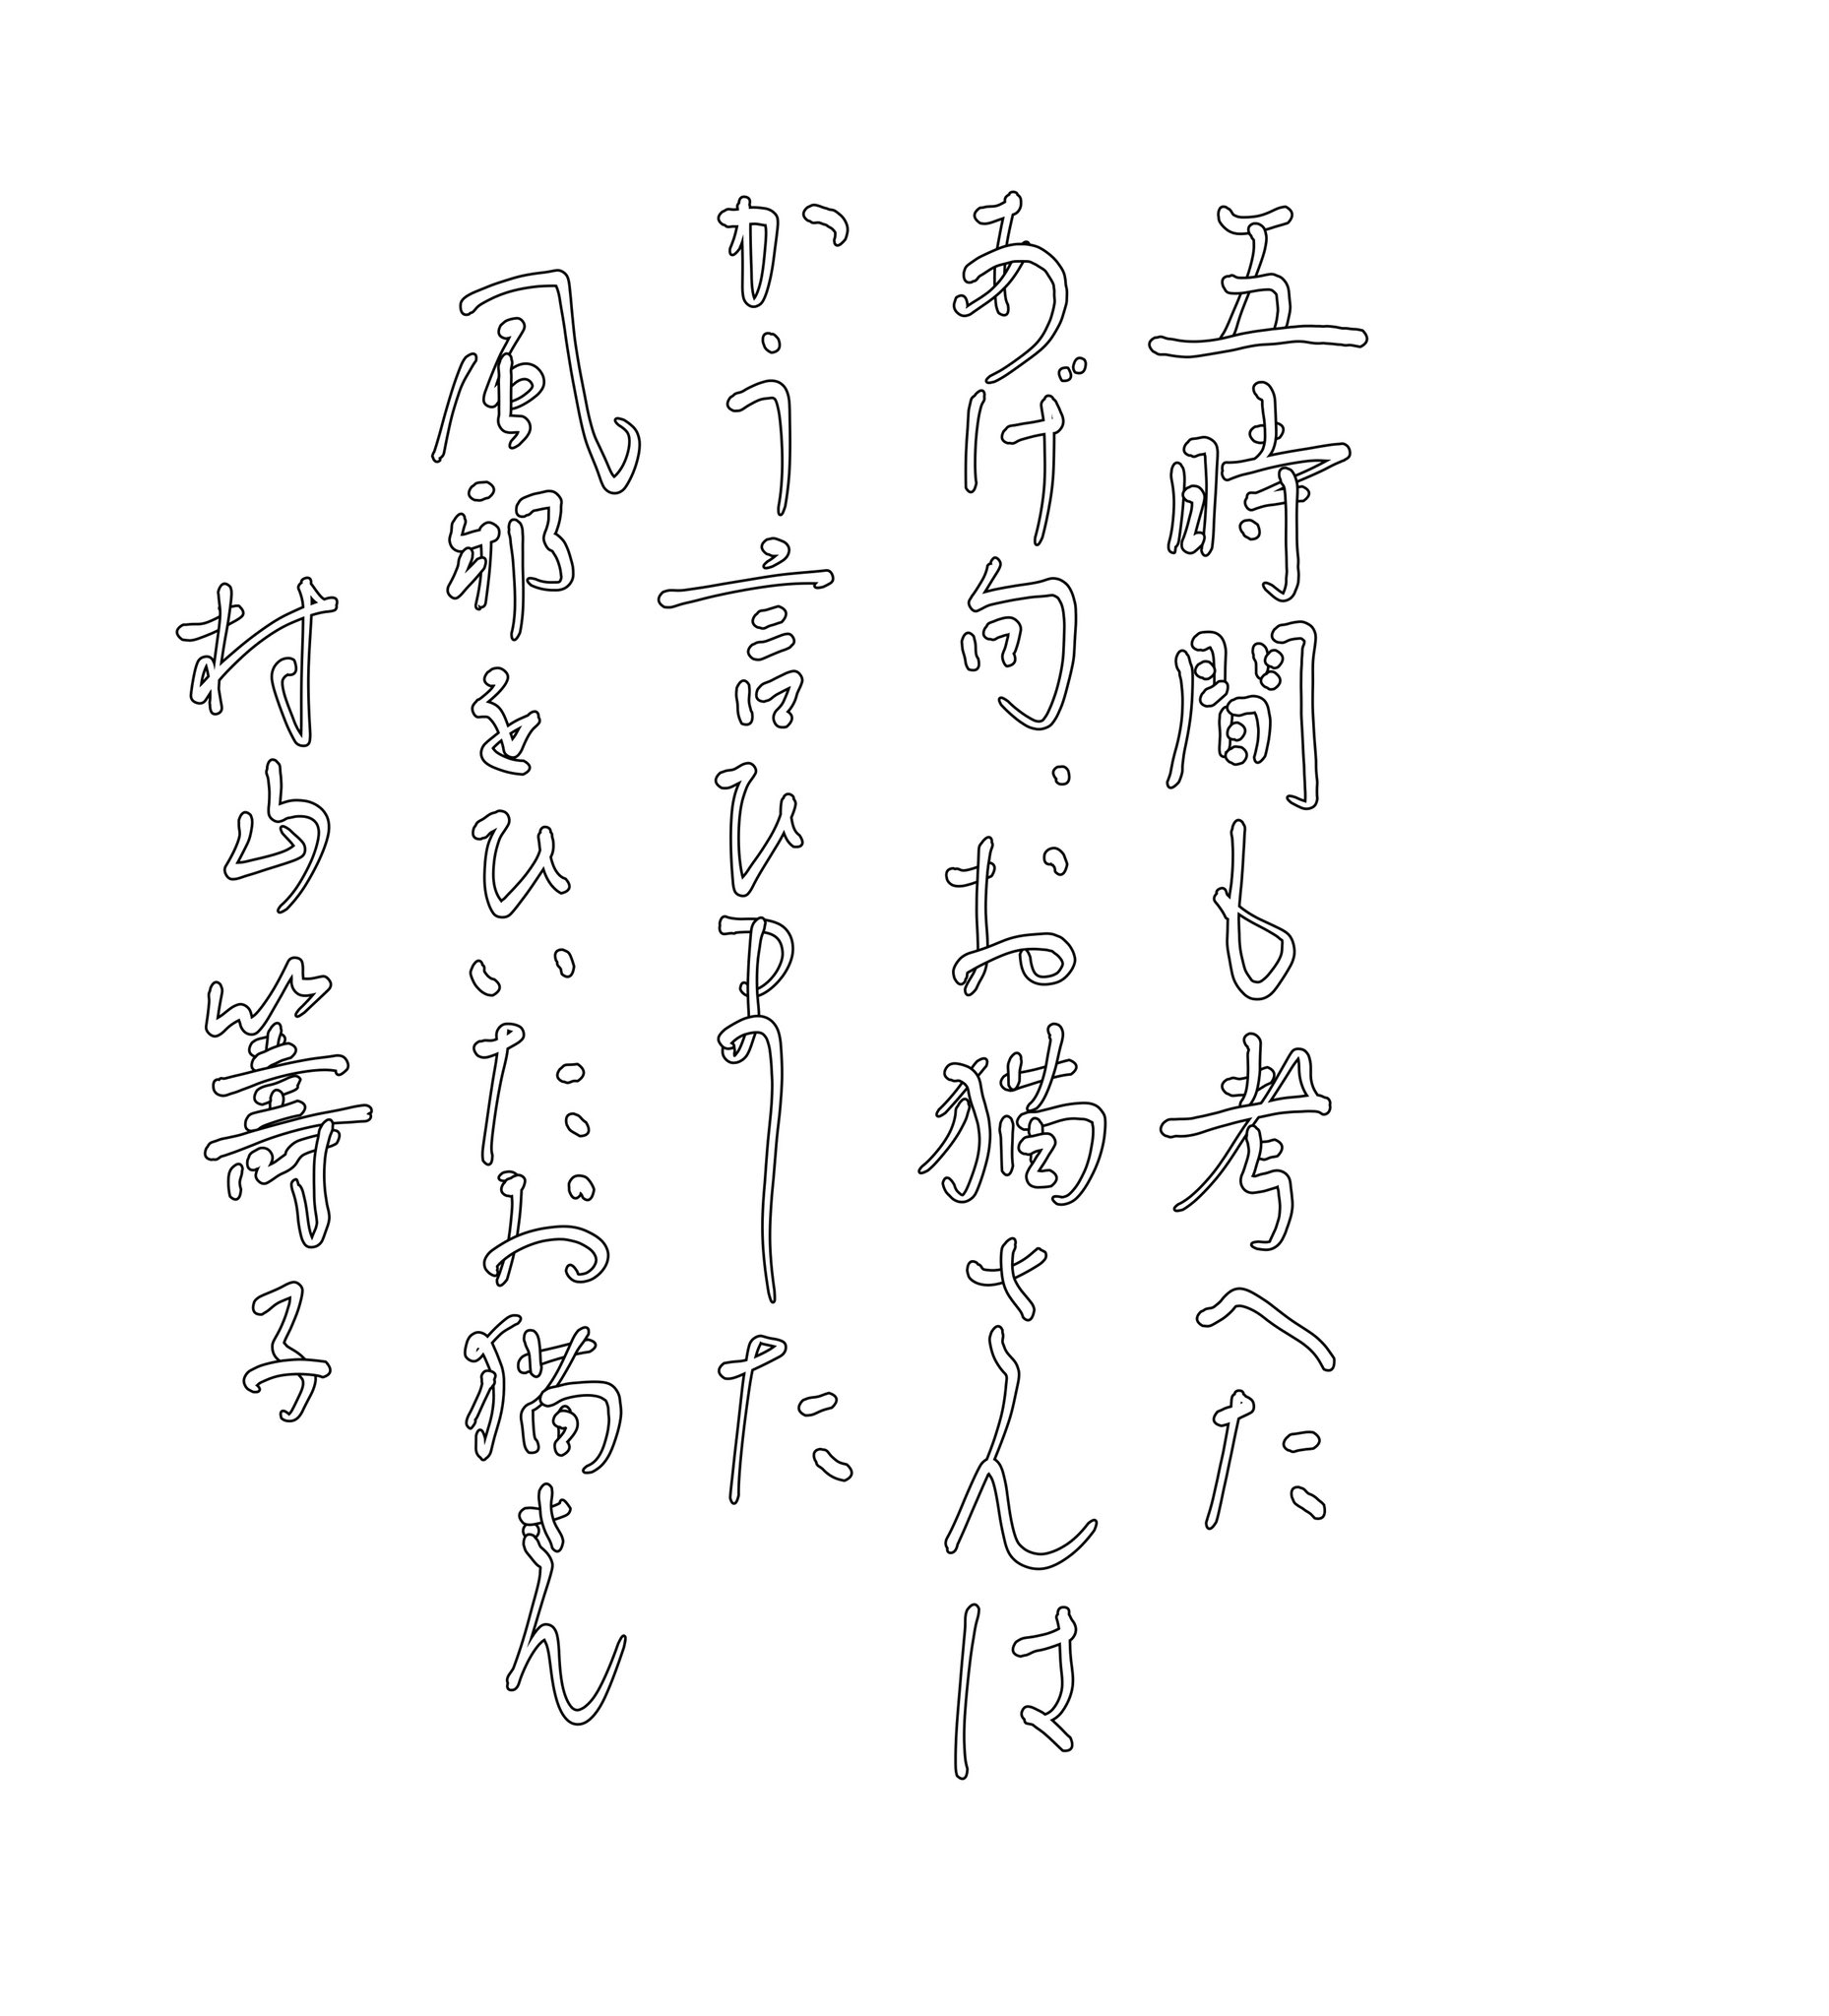 五時間も考へた
あげ句、お猫さんは
かう言ひました
風邪をひいたお猫さん
村山籌子